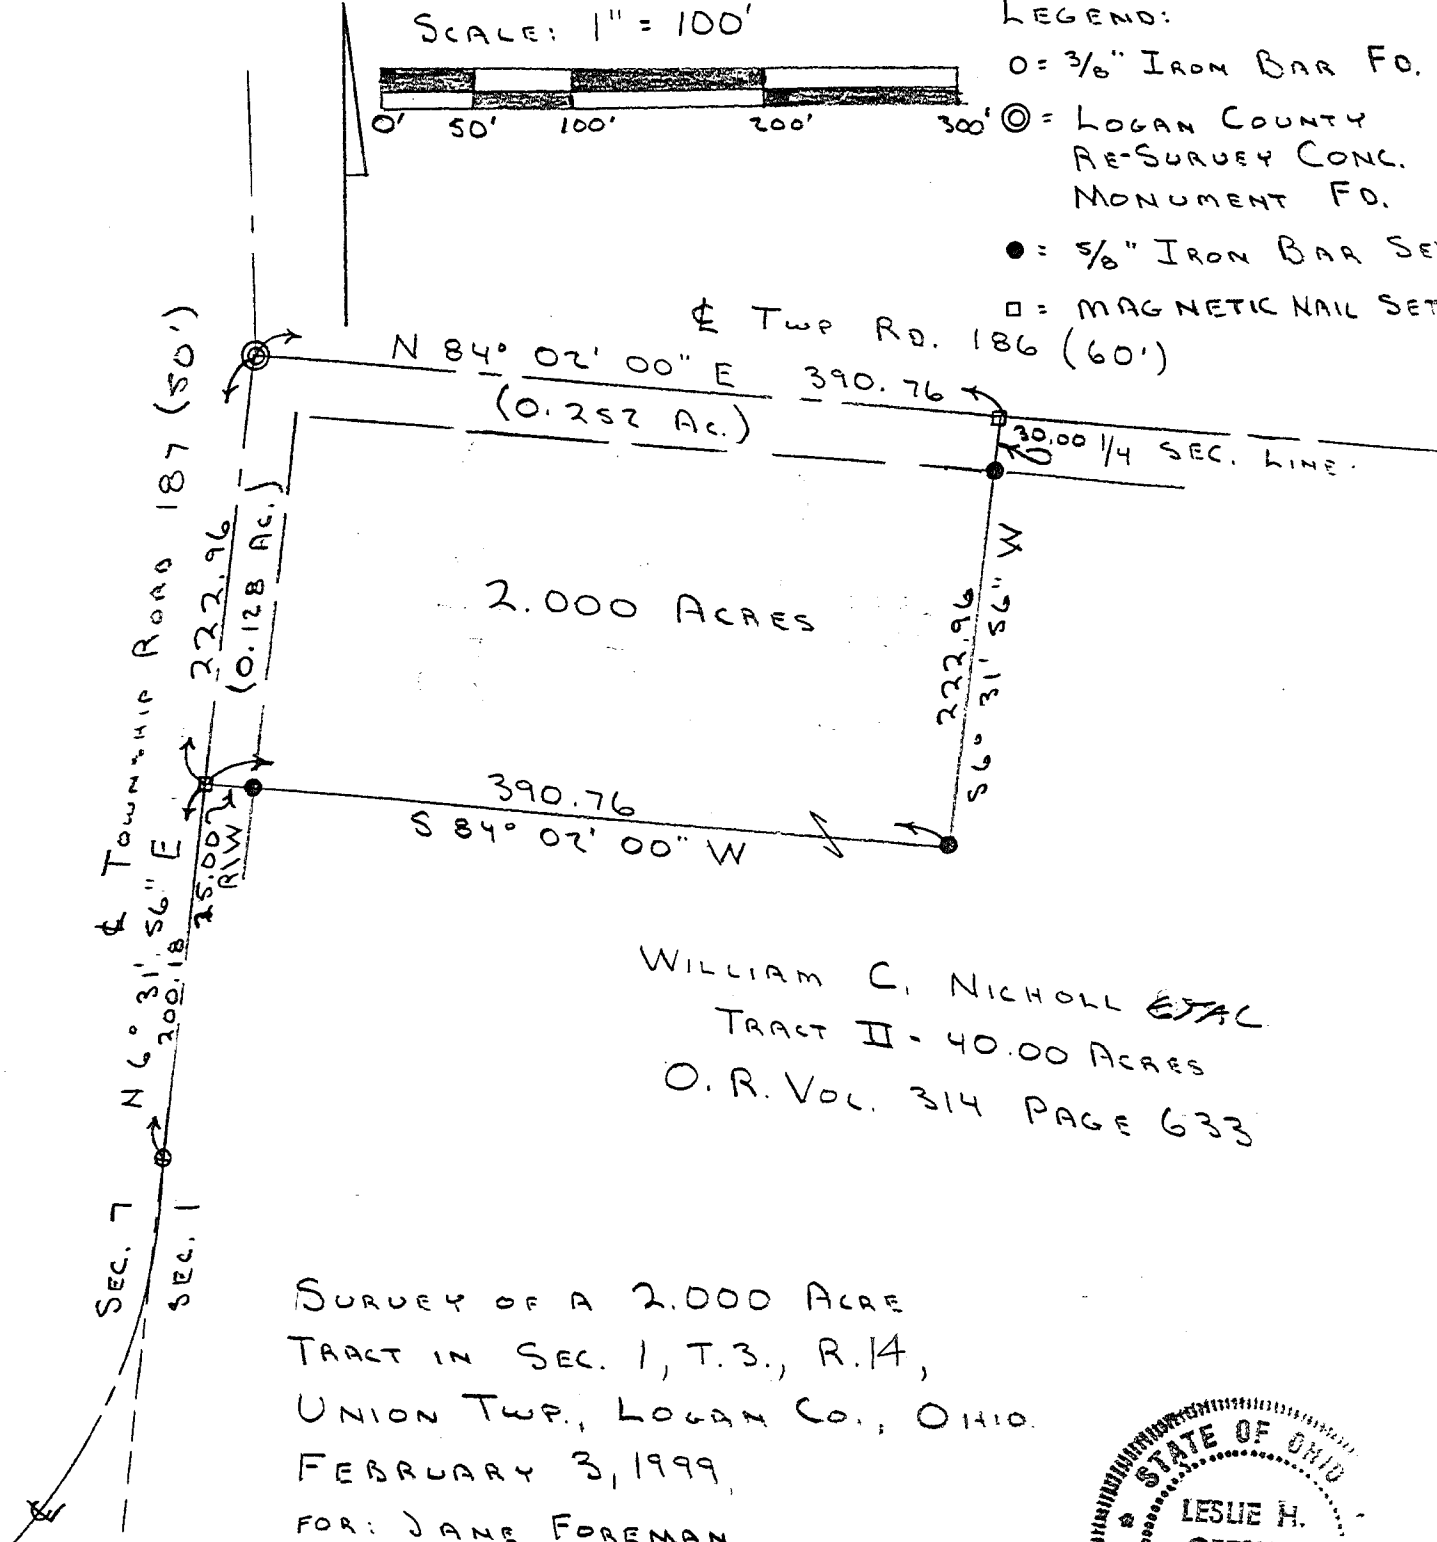 SCALE: 1" = 100'
0' 50' 100' 200' 300'
LEGEND:
O = 3/8" IRON BAR FD.
◎ = LOGAN COUNTY
RE-SURVEY CONC.
MONUMENT FD.
● = 5/8" IRON BAR SET
□ = MAGNETIC NAIL SET
℄ TWP RD. 186 (60')
N 84° 02' 00" E 390.76
(0.252 Ac.)
30.00
1/4 SEC. LINE.
℄ TOWNSHIP ROAD 187 (50')
222.96
(0.128 Ac.)
2.000 ACRES
222.96
S 6° 31' 56" W
390.76
S 84° 02' 00" W
25.00
R/W
N 6° 31' 56" E
200.18
WILLIAM C. NICHOLL ETAL
TRACT II - 40.00 ACRES
O. R. VOL. 314 PAGE 633
SEC. 7
SEC. 1
℄
SURVEY OF A 2.000 ACRE
TRACT IN SEC. 1, T.3., R.14,
UNION TWP., LOGAN CO., OHIO.
FEBRUARY 3, 1999
FOR: JANE FOREMAN
STATE OF OHIO
LESLIE H.